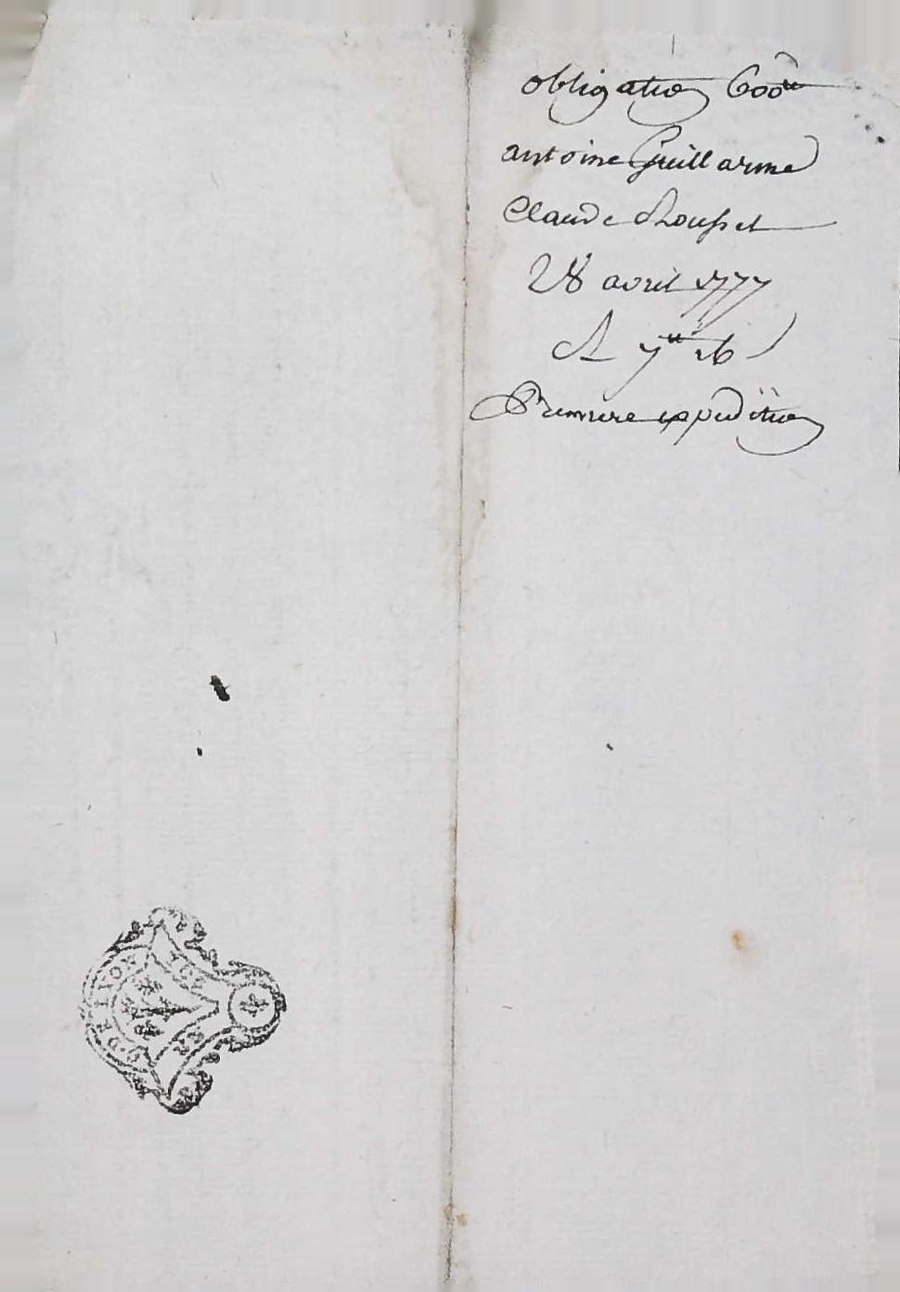 obligation 600ₗₜ
antoine Guillarme
Claude Rousset
28 avril 1777
A 7ₗₜ 16
Premiere expedition
DE LYON